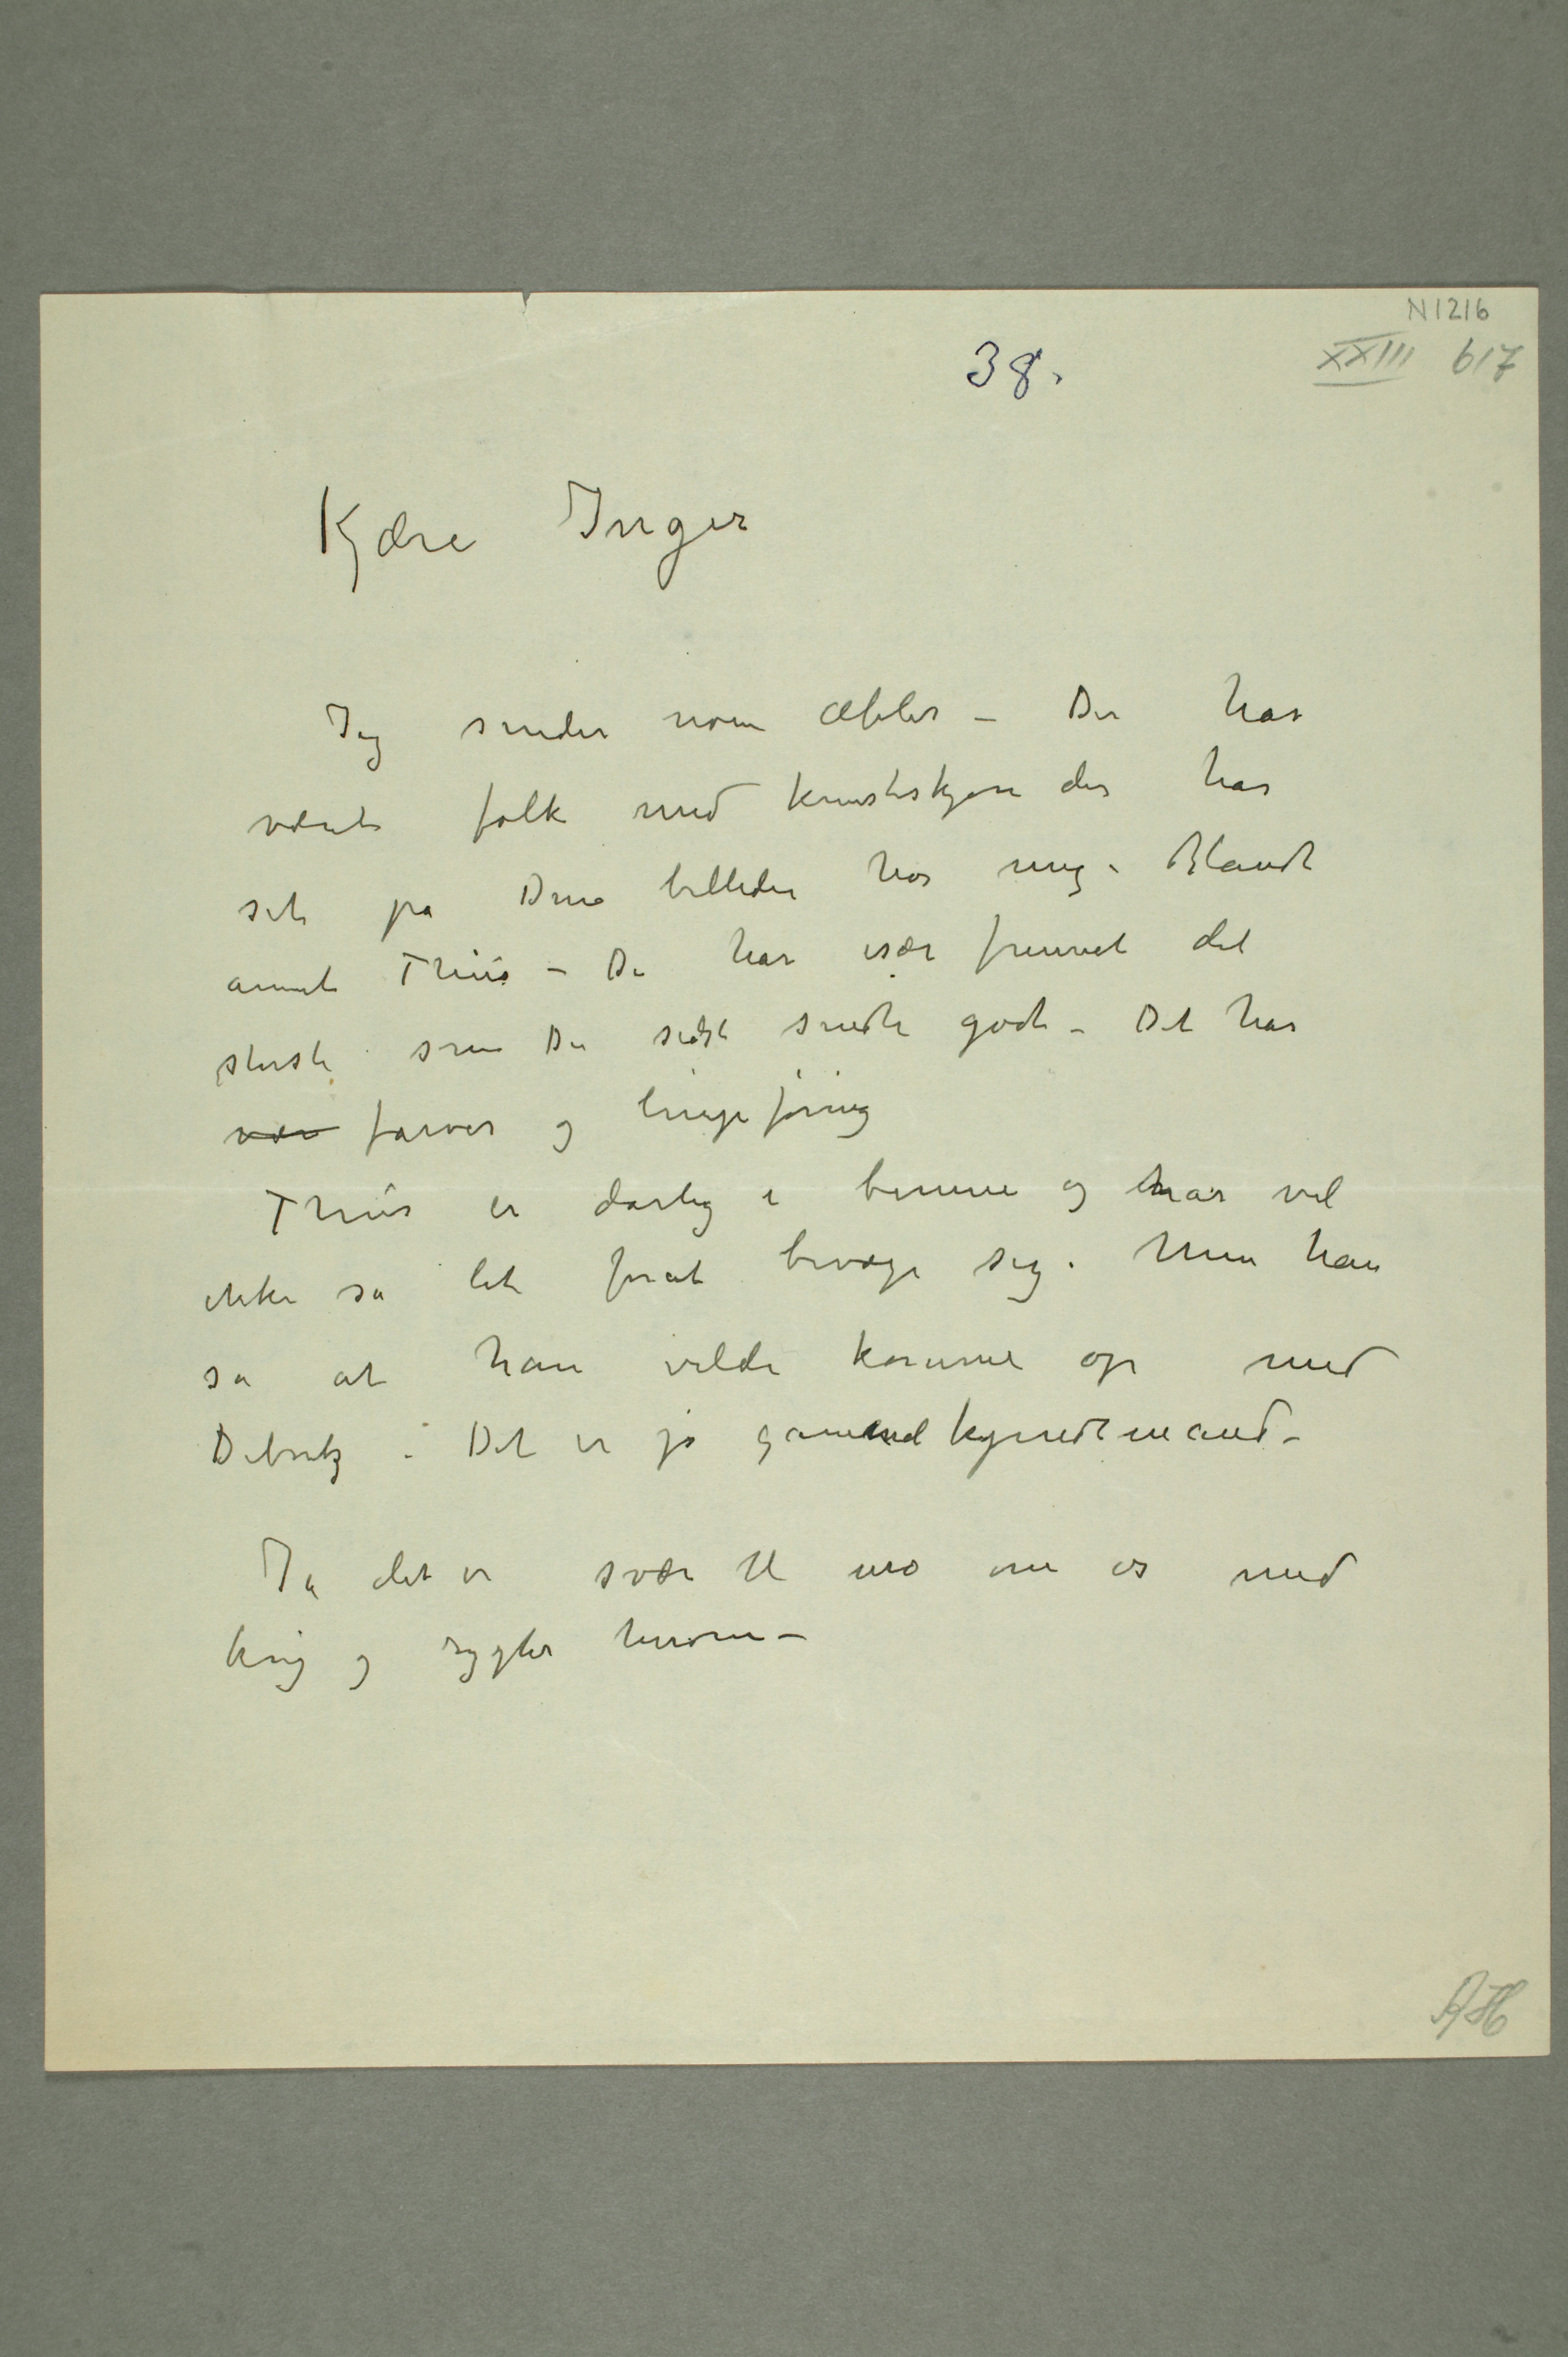 N1216
38.
XXIII 617
Kjære Inger
Jeg sender noen æbler – Der har
været folk med kunstskjøn der har
set på Dine billeder hos mig – Blandt
annet Thiis – De har især funnet det
største som Du sidst sendte godt – Det har
vær farver og linjeføring
Thiis er dårlig i benene og har vel
ikke så let for at bevæge sig. Men han
sa at han vilde komme op med
Debsitz – Det er jo gammel kjendtmand –
Ja det er svær til uro om os med
krig og rygter herom –